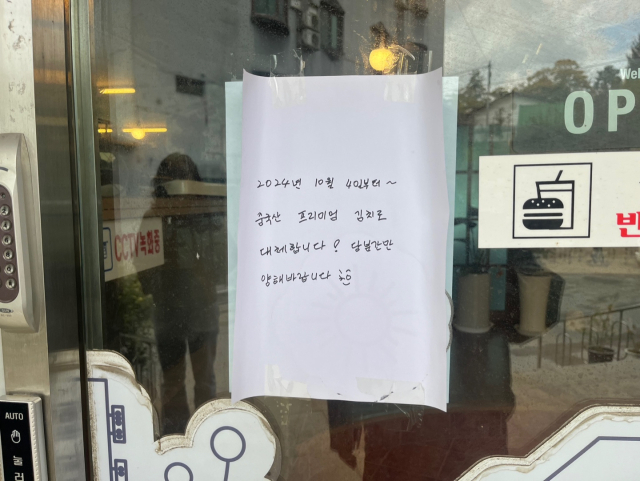 Wel
OP
2024년 10월 4일부터~
중국산 프리미엄 김치로
대체합니다! 당분간만
양해바랍니다
CCTV녹화중
반
AUTO
눌러